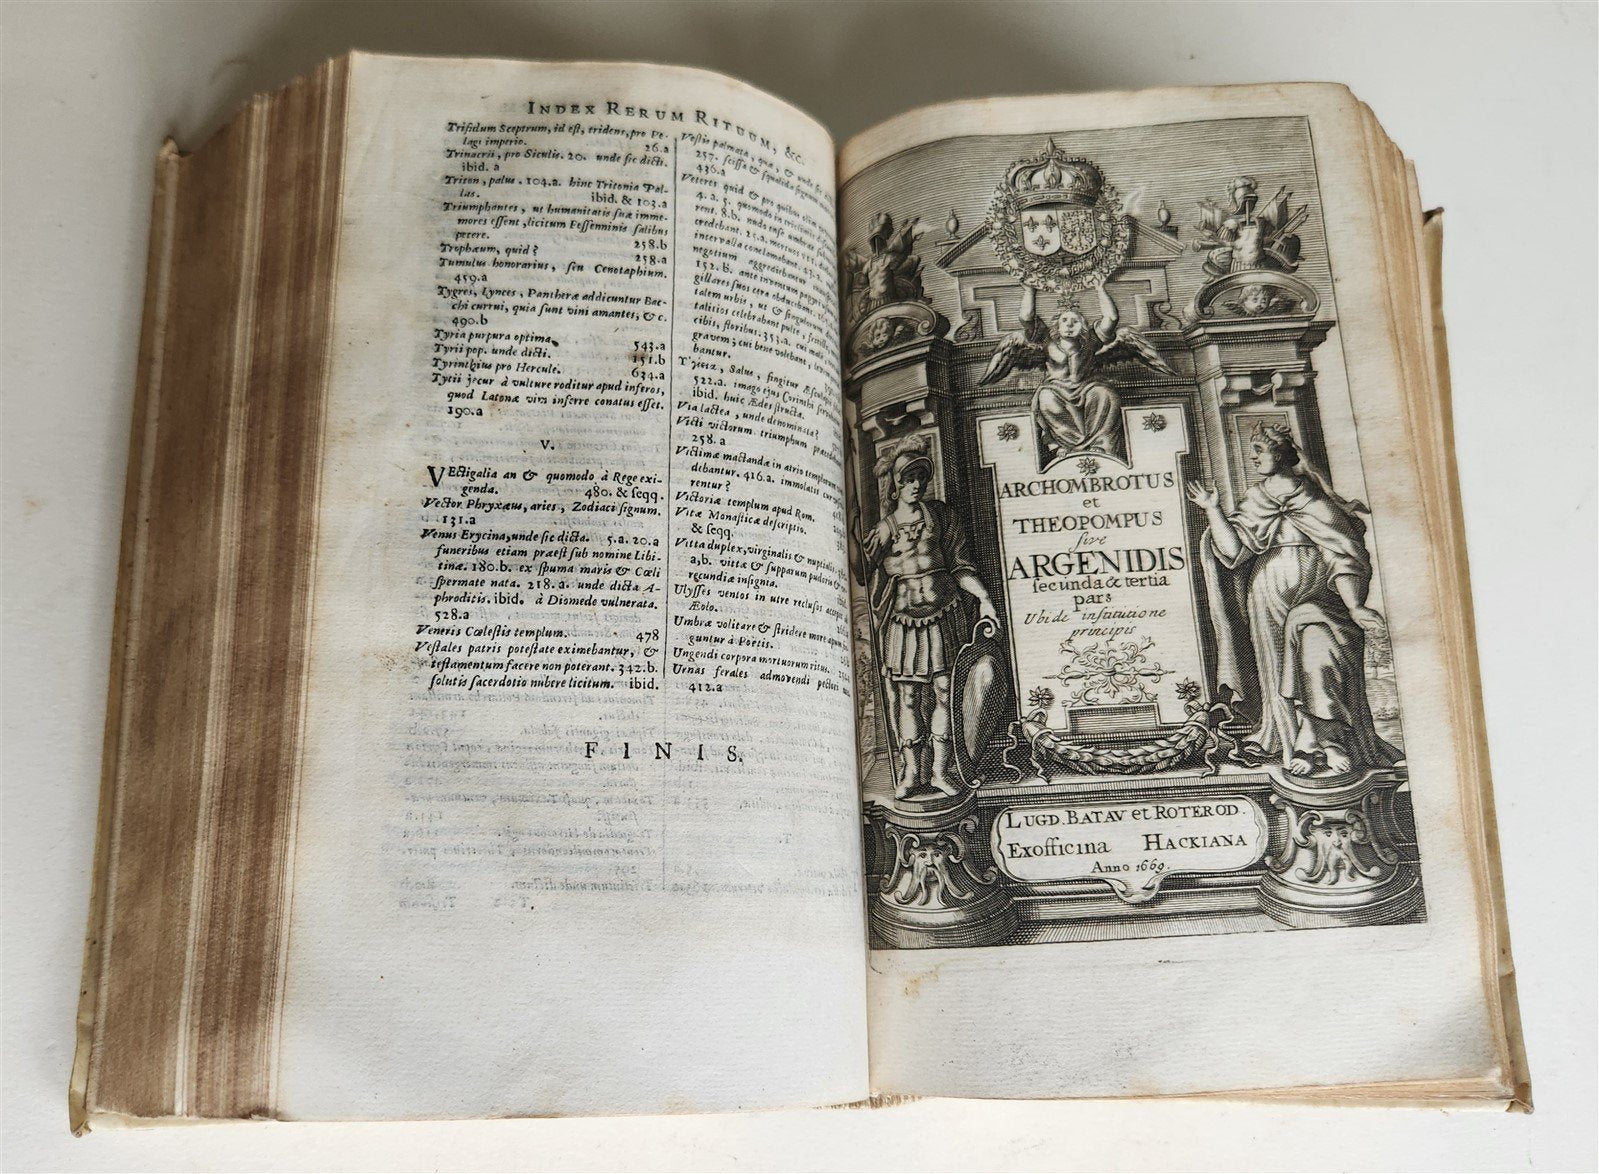 INDEX RERUM RITUUM, &c.
Trifidum Sceptrum, id est, tridens, pro Pe-
lagi imperio. 26.a
Trinacrii, pro Siculis. 20. unde sic dicti.
ibid. a
Triton, palus. 104.a. hinc Tritonia Pal-
las. ibid. & 103.a
Triumphantes, ut humanitatis suæ imme-
mores essent, licitum Fessenninis salibus
petere. 258.b
Trophæum, quid? 258.a
Tumulus honorarius, seu Cenotaphium.
459.a
Tygres, Lynces, Pantheræ adducuntur Bac-
chi currui, quia sunt vini amantes, & c.
490.b
Tyria purpura optima. 543.a
Tyrii pop. unde dicti. 151.b
Tyrinthius pro Hercule. 634.a
Tytii jecur à vulture roditur apud inferos,
quod Latonæ vim inferre conatus esset.
190.a
V.
VEctigalia an & quomodo à Rege exi-
genda. 480. & seqq.
Vector Phryxæus, aries, Zodiaci signum.
131.a
Venus Erycina, unde sic dicta. 5.a. 20.a
funeribus etiam præest sub nomine Libi-
tinæ. 180.b. ex spuma maris & Cœli
spermate nata. 218.a. unde dicta A-
phroditis. ibid. à Diomede vulnerata.
528.a
Veneris Cœlestis templum. 478
Vestales patris potestate eximebantur, &
testamentum facere non poterant. 342.b.
solutis sacerdotio nubere licitum. ibid.
Vestis palmata, qua, & unde sic
257. scissa & squalida
436.a
Veteres quid & pro quibus
4.a. 5. quomodo in
rent. 8.b. nudo ense umbras
credebant. 25.a. mortuet
intervalla conclamabant.
negotium aggrediebantur
152.b. ante inventum papyri
gillares suos cera obducebant.
talem urbis, ut & singulorum
talitios celebrabant pulte,
cibis, floribus. 353.a. cui male
gravem; cui bene volebant,
bantur.
Salus, fingitur Æsculapii
522.a. imago ejus Corinthi
ibid. huic Ædes structa.
Via lactea, unde denominata?
Victi victorum triumphum
258.a
Victimæ mactandæ in atrio templorum
debantur. 416.a. immolatis cur
rentur?
Victoriæ templum apud Rom.
Vitæ Monasticæ descriptio.
& seqq.
Vitta duplex, virginalis & nuptialis.
a,b. vittæ & supparum pudoris &
recundiæ insignia.
Ulysses ventos in utre reclusos
Æolo.
Umbræ volitare & stridere more apum
guntur à Poëtis.
Ungendi corpora mortuorum ritus.
Urnas ferales admovendi pectori
412.a
FINIS.
ARCHOMBROTUS
et
THEOPOMPUS
sive
ARGENIDIS
secunda & tertia
pars
Ubi de institutione
principis
LUGD. BATAV et ROTEROD.
Exofficina HACKIANA
Anno 1669.